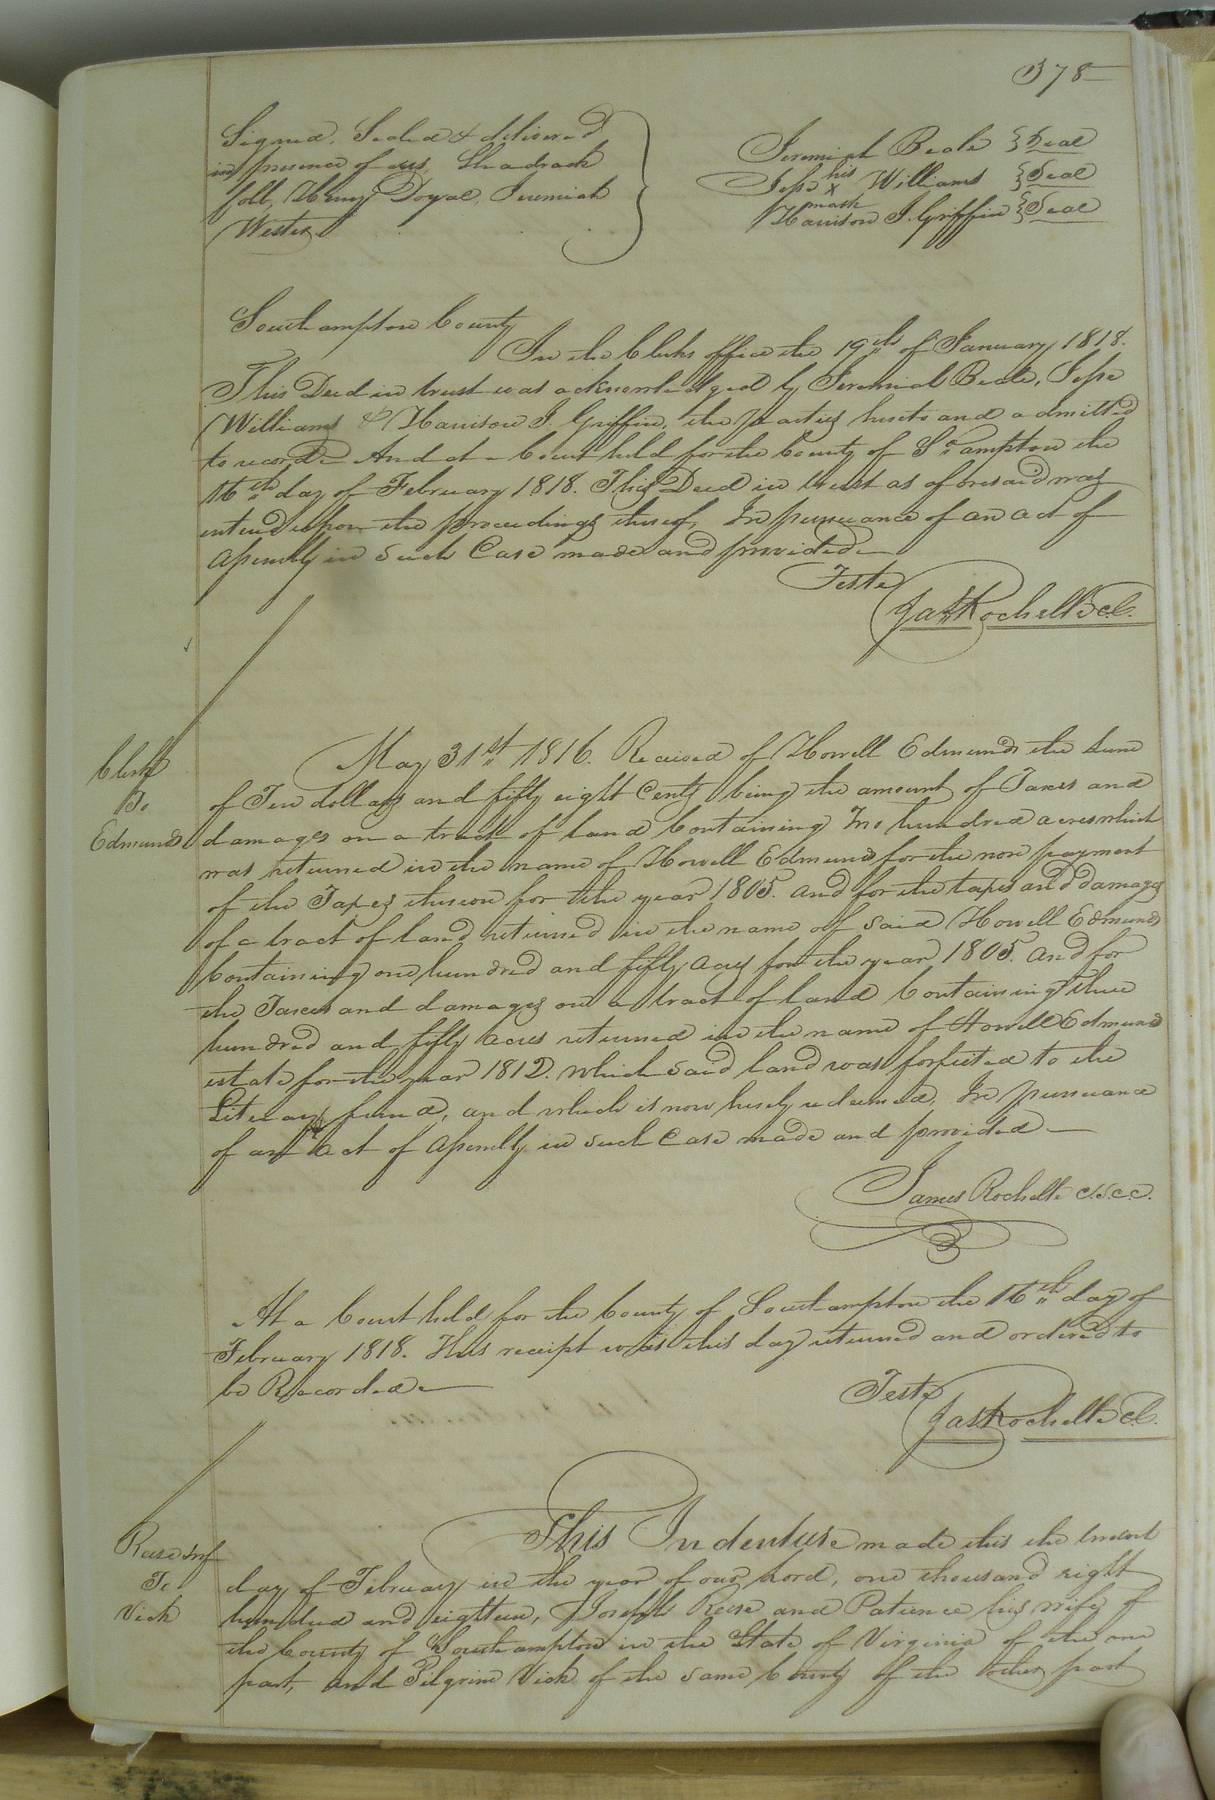 378
Signed, Sealed & delivered
in presence of us, Shadrack
Holt, Henry Doyal, Jeremiah
Wester
Jeremiah Beale {Seal
Jesse his x mark Williams {Seal
Harrison J. Griffin {Seal
Southampton County
In the Clerks office the 19th of January 1818.
This Deed in trust was acknowledged by Jeremiah Beale, Jesse
Williams & Harrison J. Griffin, the parties hereto and admitted
to record - And at a Court held for the County of So ampton the
16th day of February 1818. This Deed in trust as aforesaid was
entered upon the proceedings thereof, In pursuance of an act of
Assembly in such Case made and provided -
Teste
Jas Rochelle C.C.
Clerk
To
Edmunds
May 31st 1816. Received of Howell Edmunds the sum
of Ten dollars and fifty eight Cents being the amount of Taxes and
damages on a tract of land Containing Two hundred acres which
was returned in the name of Howell Edmunds for the non payment
of the Taxes thereon for the year 1805. and for the taxes and damages
of a tract of land returned in the name of said Howell Edmunds
Containing one hundred and fifty acres for the year 1805. and for
the Taxes and damages on a tract of land Containing three
hundred and fifty acres returned in the name of Howell Edmunds
estate for the year 1812. which said land was forfeited to the
Literary fund, and which is now hereby redeemed, In pursuance
of an act of Assembly in such Case made and provided -
James Rochelle C.S.C.C.
At a Court held for the County of Southampton the 16th day of
February 1818. This receipt was this day returned and ordered to
be Recorded -
Teste
Jas Rochelle C.C.
Reese &wf
To
Vick
This Indenture made this the
day of February in the year of our Lord, one thousand eight
hundred and eighteen, Joseph Reese and Patience his wife of
the County of Southampton in the State of Virginia of the one
part, and Pilgrim Vick of the same County of the other part